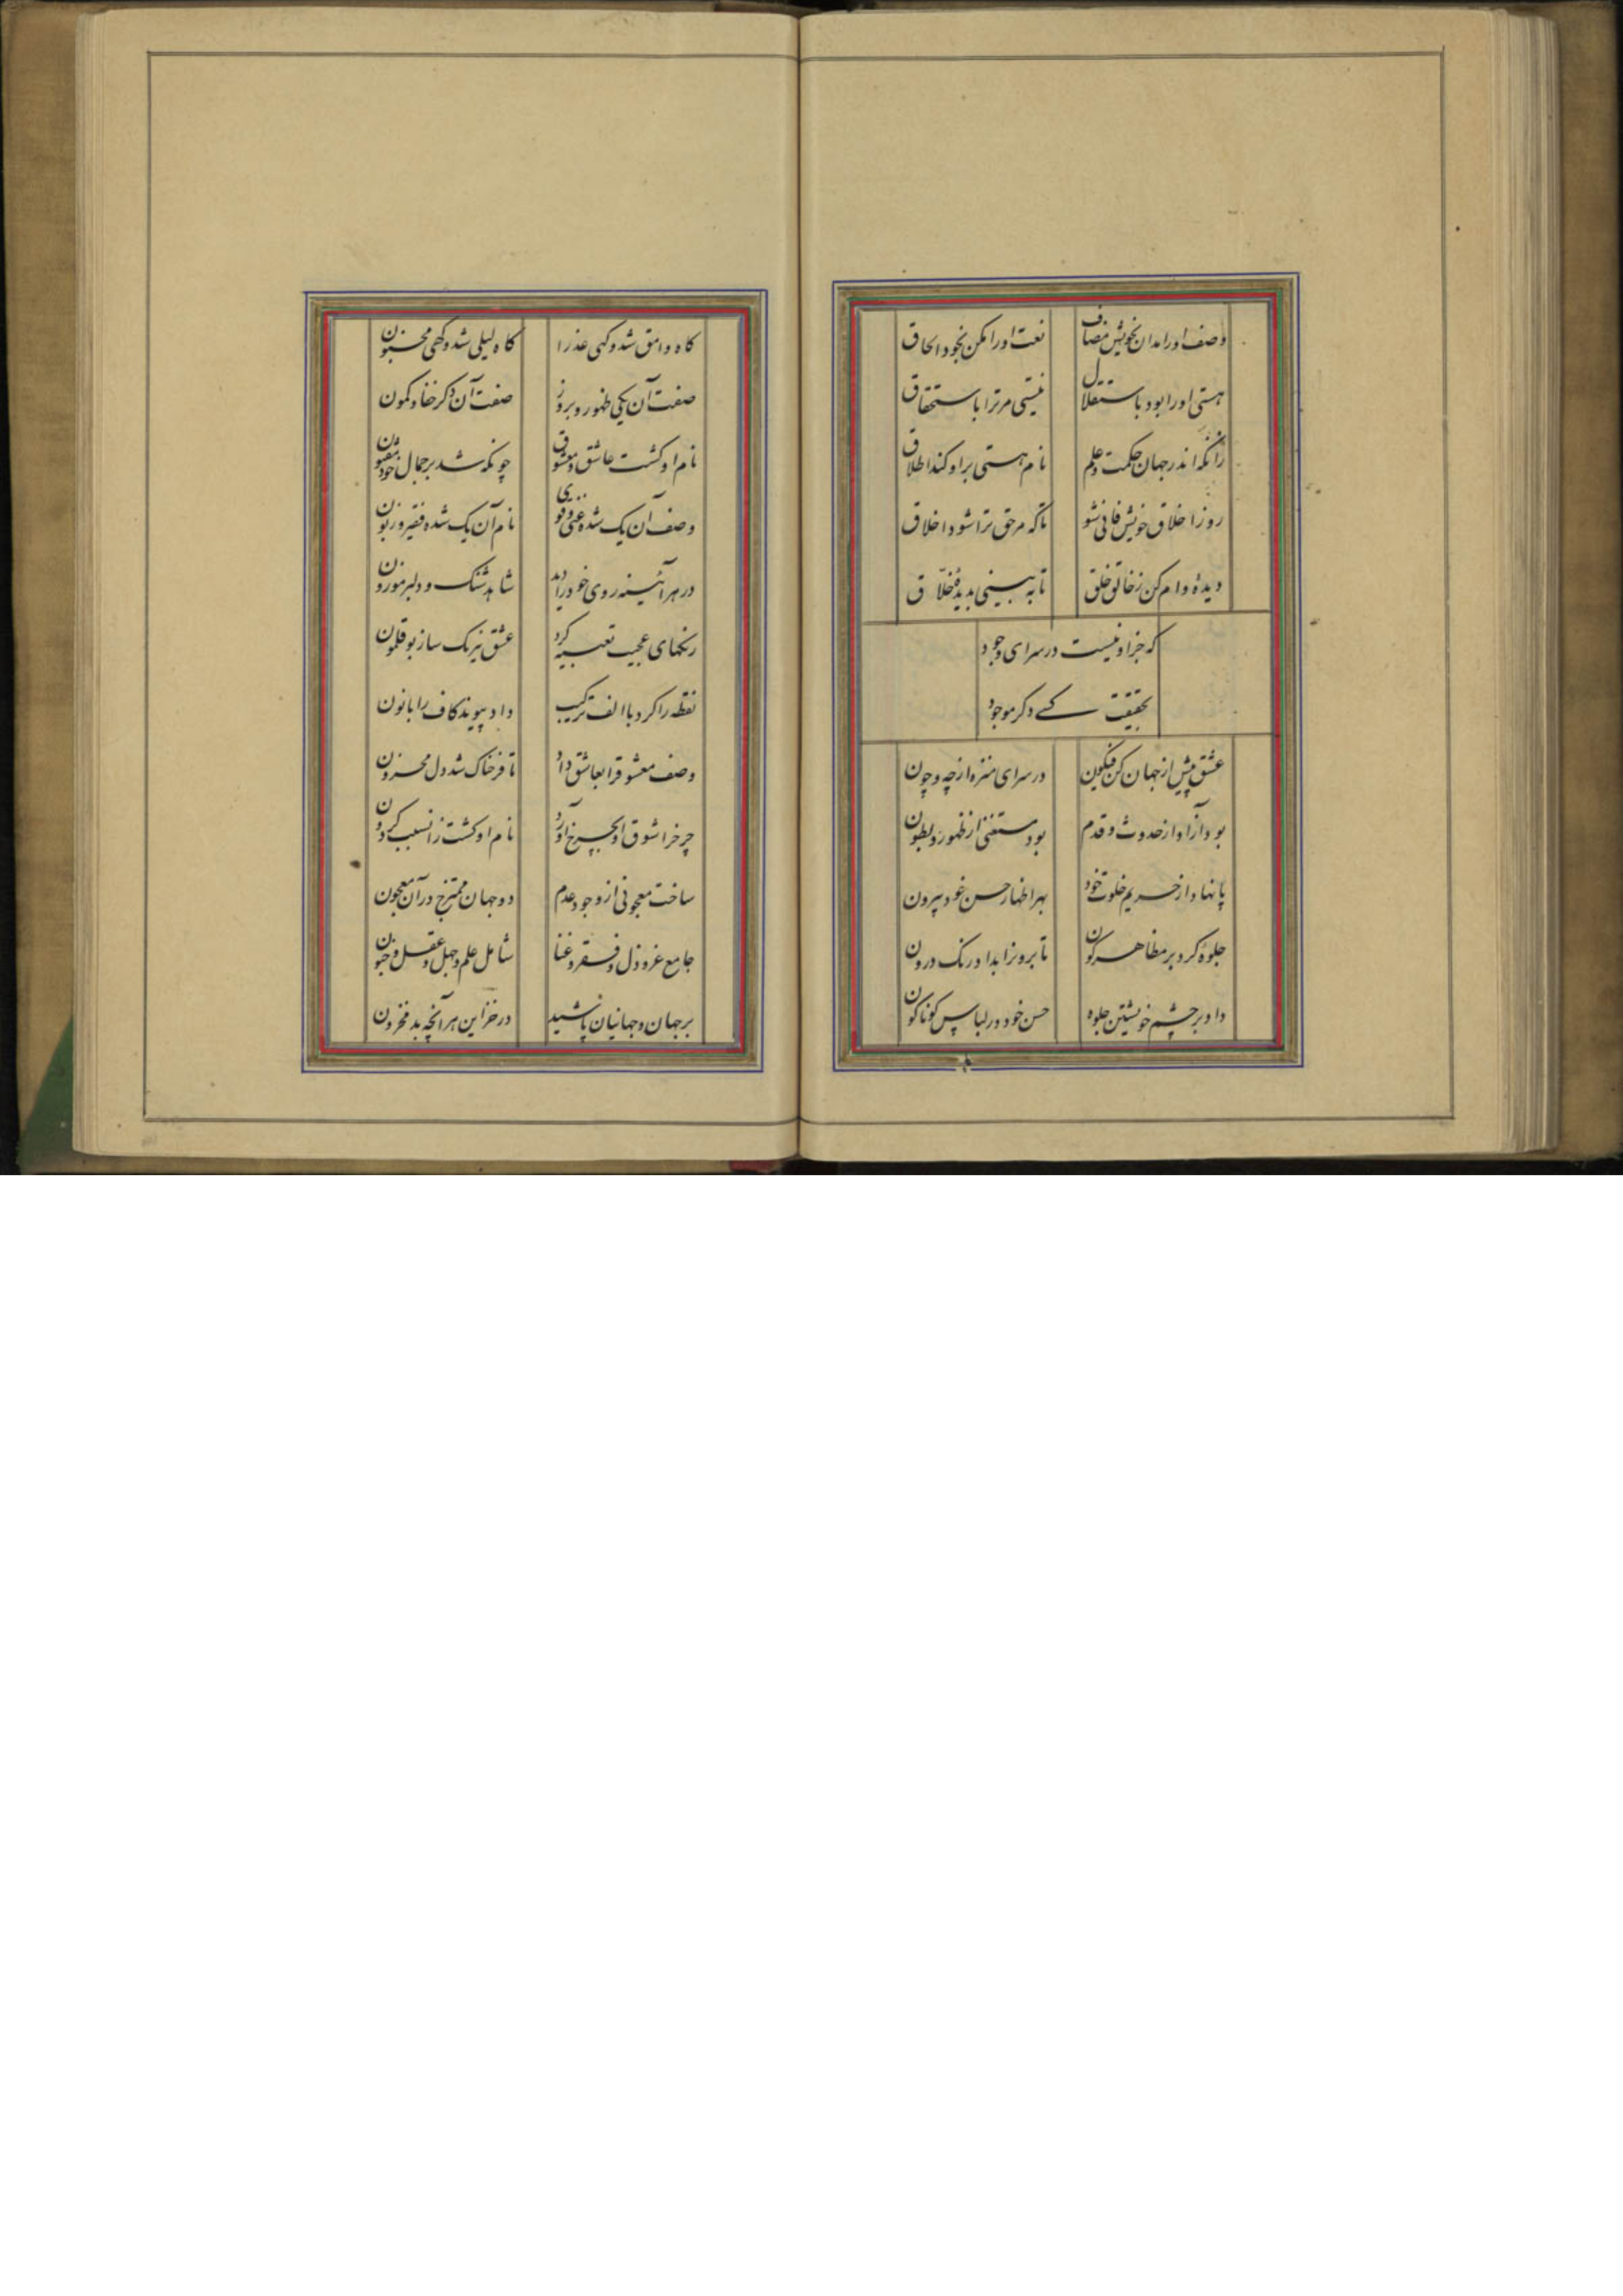 وصف او را مدان بخویش مضاف نعت او را مکن بخود الحاق
هستی او را بود باستقلال نیستی مر ترا باستحقاق
زانکه اندر جهان حکمت و علم نام هستی براو کند اطلاق
رو ز اخلاق خویش فانی شو تا که مر حق ترا شود اخلاق
دیدهٔ وام کن ز خالق خلق تا به بینی بدیدهٔ خلّاق
که جز او نیست در سرای وجود
بحقیقت کسے دکر موجود
عشق پیش از جهان کن فیکون در سرای منزه از چه و چون
بود آزاد از حدوث و قدم بود مستغنی از ظهور و بطون
پا نهاد از حریم خلوت خود بهر اظهار حسن خود بیرون
جلوهٔ کرد بر مظاهر کون تا برونرا بداد رنک درون
داد بر چشم خویشتن جلوه حسن خود در لباس کوناکون
کاه وامق شد و کهی عذرا کاه لیلی شد و کهی مجنون
صفت آن یکی ظهور و بروز صفت آن دکر خفا و کمون
نام او کشت عاشق و معشوق چونکه شد بر جمال خود مفتون
وصف آن یک شده غنی و قوی نام آن یک شده فقیر و زبون
در هر آئینه روی خود را دید شاهد شنک و دلبر موزون
رنکهای عجیب تعبیه کرد عشق نیرنک ساز بوقلمون
نقطه را کرد با الف ترکیب داد پیوند کاف را با نون
وصف معشوق را بعاشق داد تا فرخاک شد دل محزون
چرخ را شوق او بچرخ آورد نام او کشت زانسبب کردون
ساخت معجونی از وجود و عدم دو جهان ممتزج در آن معجون
جامع عز و ذل و فقر و غنا شامل علم و جهل و عقل و جنون
بر جهان و جهانیان پاشید در خزاین هر آنچه بد مخزون